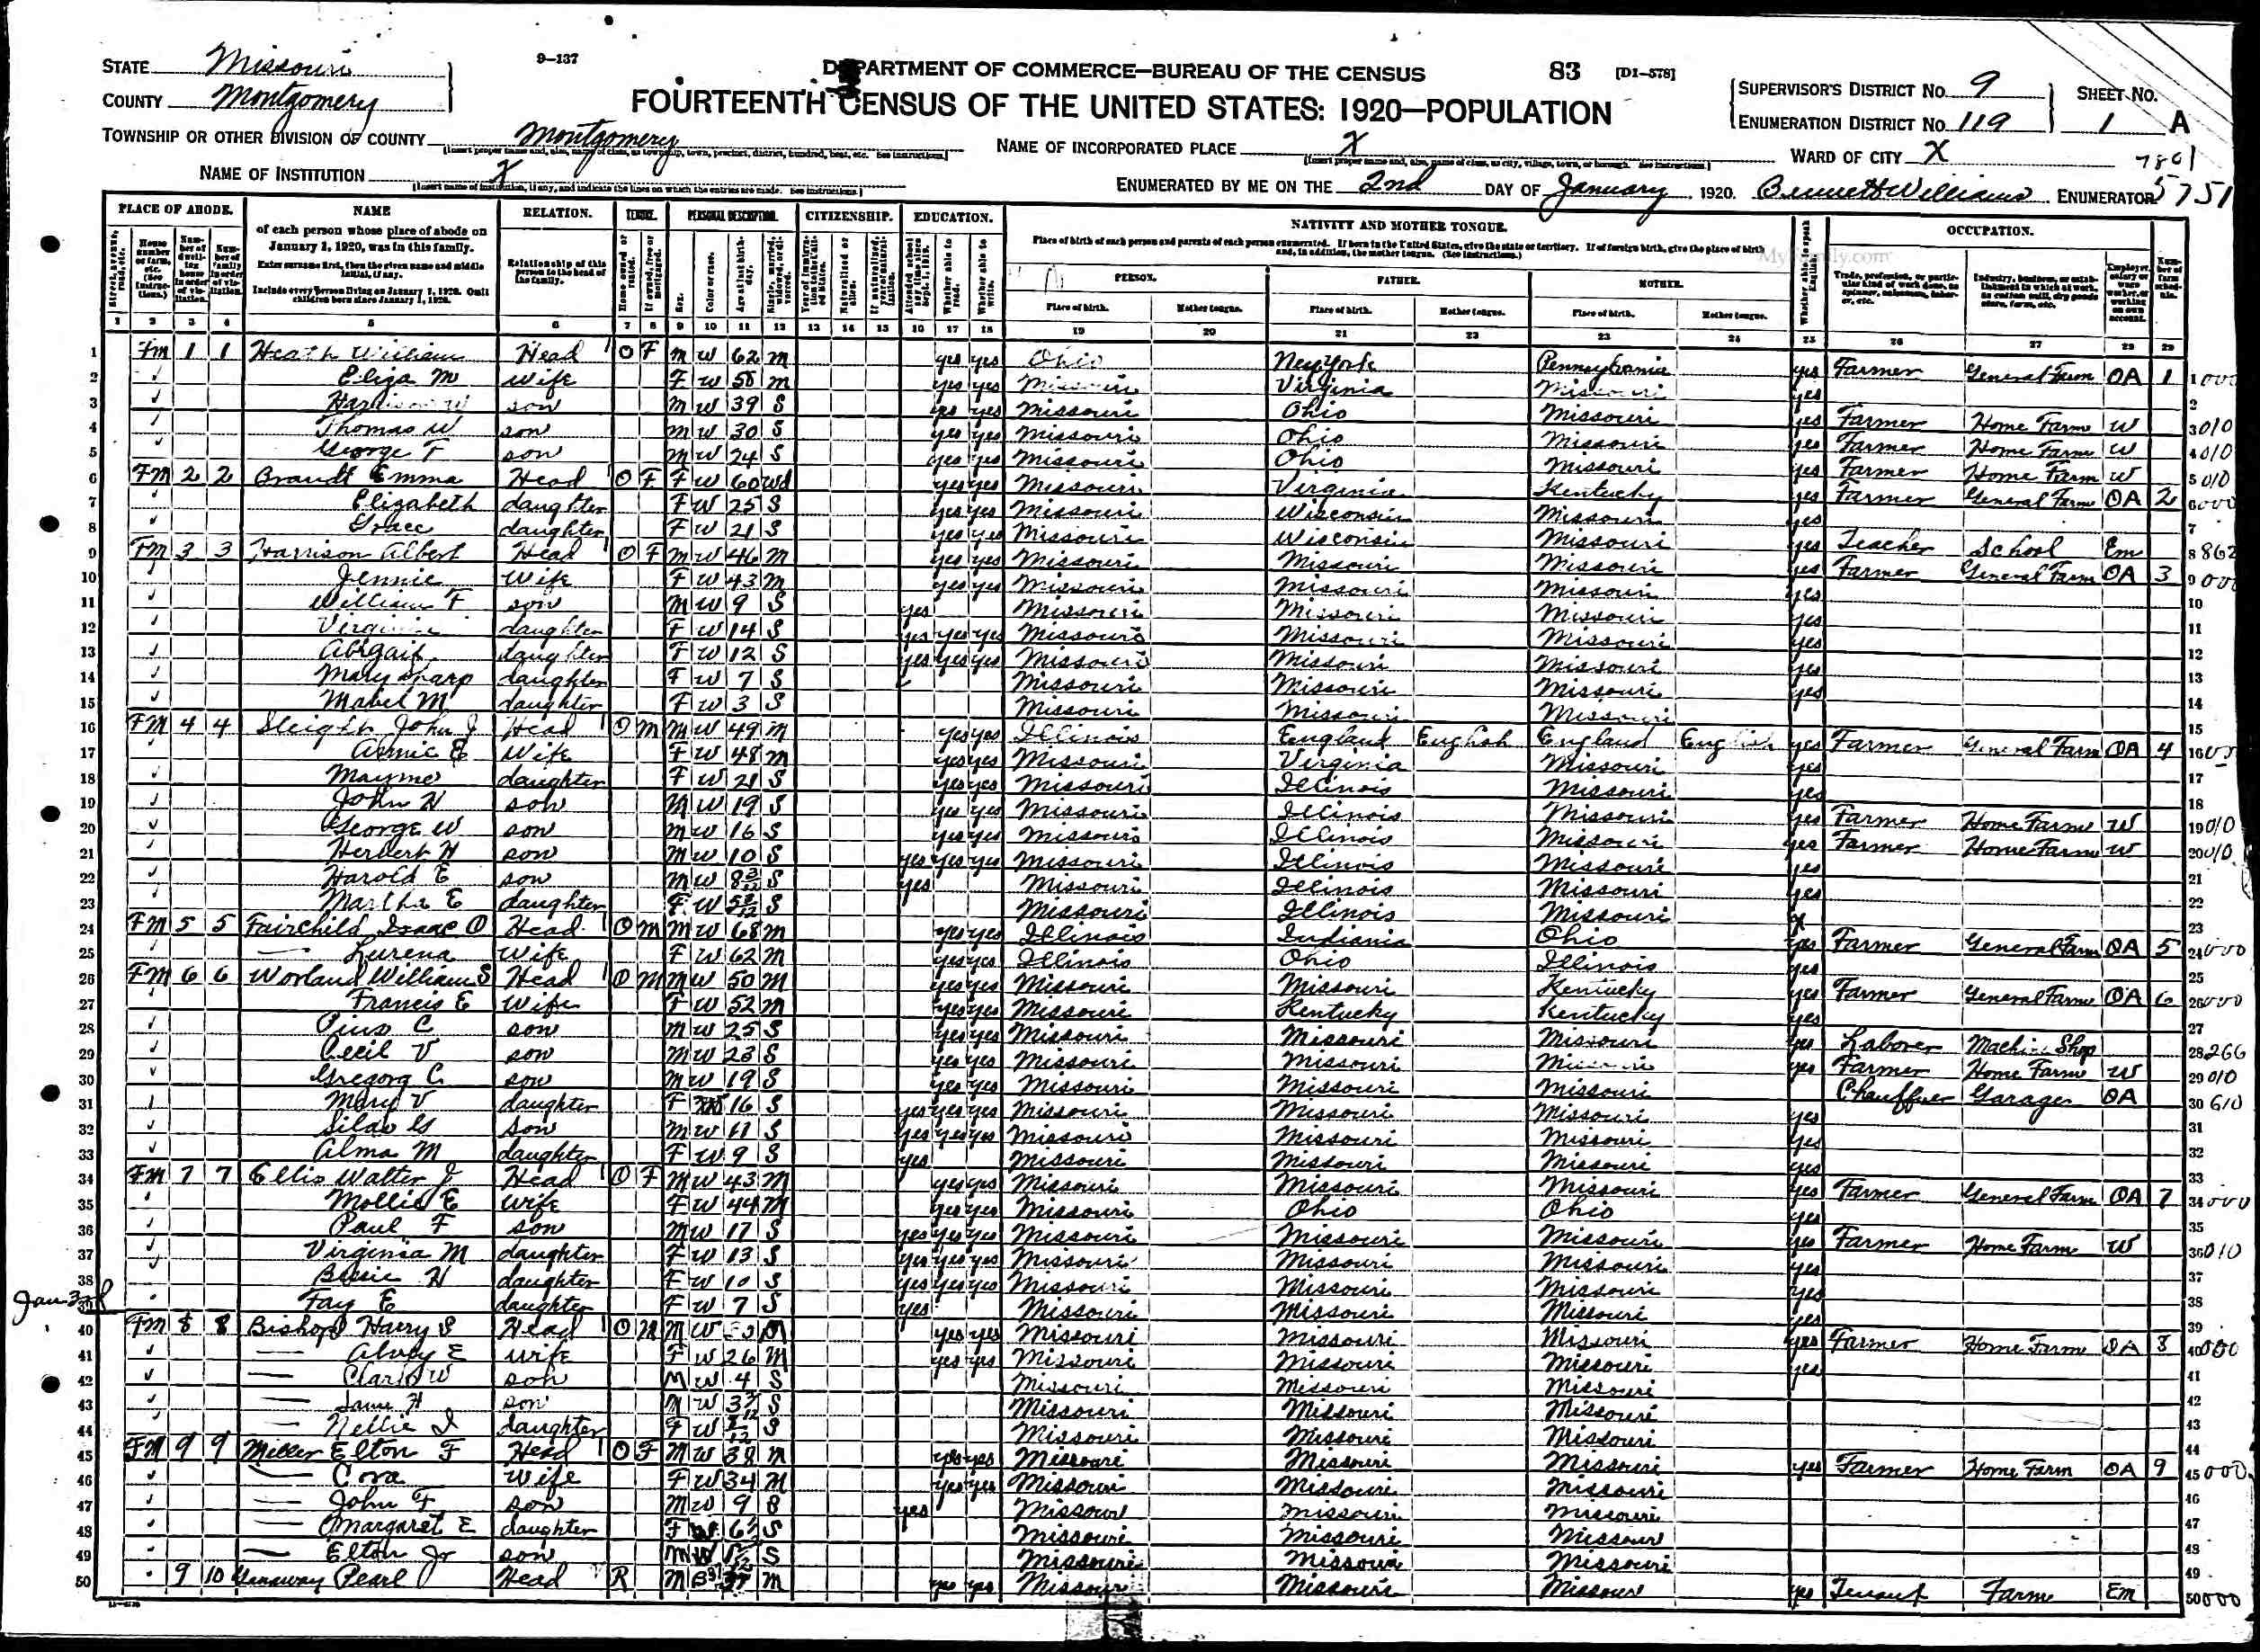 9-137
DEPARTMENT OF COMMERCE—BUREAU OF THE CENSUS
83 [D1-578]
FOURTEENTH CENSUS OF THE UNITED STATES: 1920—POPULATION
STATE Missouri
COUNTY Montgomery
TOWNSHIP OR OTHER DIVISION OF COUNTY Montgomery
NAME OF INSTITUTION X
NAME OF INCORPORATED PLACE X
SUPERVISOR'S DISTRICT No. 9
ENUMERATION DISTRICT No. 119
SHEET No. 1 A
WARD OF CITY X
ENUMERATED BY ME ON THE 2nd DAY OF January, 1920. Bennett Williams ENUMERATOR 5751
PLACE OF ABODE. NAME RELATION. TENURE. PERSONAL DESCRIPTION. CITIZENSHIP. EDUCATION. NATIVITY AND MOTHER TONGUE. OCCUPATION.
of each person whose place of abode on January 1, 1920, was in this family.
Enter surname first, then the given name and middle initial, if any.
Include every person living on January 1, 1920. Omit children born since January 1, 1920.
Relationship of this person to the head of the family.
PERSON. FATHER. MOTHER.
Place of birth. Mother tongue. Place of birth. Mother tongue. Place of birth. Mother tongue.
1 Fm 1 1 Heath William Head 1 O F M W 62 M yes yes Ohio New York Pennsylvania yes Farmer General Farm OA 1
2 Eliza M wife F W 58 M yes yes Missouri Virginia Missouri yes
3 son M W 39 S yes yes Missouri Ohio Missouri yes Farmer Home Farm W 3 010
4 Thomas W son M W 30 S yes yes Missouri Ohio Missouri yes Farmer Home Farm W 4 010
5 George F son M W 24 S yes yes Missouri Ohio Missouri yes Farmer Home Farm W 5 010
6 Fm 2 2 Brandt Emma Head O F F W 60 Wd yes yes Missouri Virginia Kentucky yes Farmer General Farm OA 2
7 Elizabeth daughter F W 25 S yes yes Missouri Wisconsin Missouri yes
8 Grace daughter F W 21 S yes yes Missouri Wisconsin Missouri yes Teacher School Em 8 862
9 Fm 3 3 Harrison Albert Head 1 O F M W 46 M yes yes Missouri Missouri Missouri yes Farmer General Farm OA 3
10 Jennie Wife F W 43 M yes yes Missouri Missouri Missouri yes
11 William F son M W 9 S yes Missouri Missouri Missouri yes
12 Virginia daughter F W 14 S yes yes yes Missouri Missouri Missouri yes
13 Abigail daughter F W 12 S yes yes yes Missouri Missouri Missouri yes
14 Mary Sharp daughter F W 7 S Missouri Missouri Missouri yes
15 Mabel M daughter F W 3 S Missouri Missouri Missouri
16 Fm 4 4 Sleight John J Head 1 O M M W 49 M yes yes Illinois England English England English yes Farmer General Farm OA 4
17 Annie E Wife F W 48 M yes yes Missouri Virginia Missouri yes
18 Mayme daughter F W 21 S yes yes Missouri Illinois Missouri yes
19 John H son M W 19 S yes yes Missouri Illinois Missouri yes Farmer Home Farm W 19 010
20 George W son M W 16 S yes yes Missouri Illinois Missouri yes Farmer Home Farm W 20 010
21 Herbert H son M W 10 S yes yes yes Missouri Illinois Missouri yes
22 Harold E son M W S yes Missouri Illinois Missouri yes
23 Martha E daughter F W S Missouri Illinois Missouri
24 Fm 5 5 Fairchild Isaac O Head 1 O M M W 68 M yes yes Illinois Indiania Ohio yes Farmer General Farm OA 5 24 000
25 Lurena Wife F W 62 M yes yes Illinois Ohio Illinois yes
26 Fm 6 6 Worland William S Head 1 O M M W 50 M yes yes Missouri Missouri Kentucky yes Farmer General Farm OA 6 26 000
27 Francis E Wife F W 52 M yes yes Missouri Kentucky Kentucky yes
28 Pius C son M W 25 S yes yes Missouri Missouri Missouri yes Laborer Machine Shop 28 266
29 Cecil V son M W 23 S yes yes Missouri Missouri Missouri yes Farmer Home Farm W 29 010
30 Gregory C son M W 19 S yes yes Missouri Missouri Missouri Chauffuer Garage OA 30 610
31 Mary V daughter F 16 S yes yes yes Missouri Missouri Missouri yes
32 Silas G son M W 11 S yes yes yes Missouri Missouri Missouri yes
33 Alma M daughter F W 9 S yes Missouri Missouri Missouri yes
34 Fm 7 7 Ellis Walter J Head 1 O F M W 43 M yes yes Missouri Missouri Missouri yes Farmer General Farm OA 7 34 000
35 Mollie E wife F W 44 M yes yes Missouri Ohio Ohio yes
36 Paul F son M W 17 S yes yes yes Missouri Missouri Missouri yes Farmer Home Farm W 36 010
37 Virginia M daughter F W 13 S yes yes yes Missouri Missouri Missouri yes
38 H daughter F W 10 S yes yes yes Missouri Missouri Missouri yes
Jan 3rd 39 Fay E daughter F W 7 S yes Missouri Missouri Missouri yes
40 Fm 8 8 Bishop Harry S Head 1 O M M W M yes yes Missouri Missouri Missouri yes Farmer Home Farm OA 8 40 000
41 E wife F W 26 M yes yes Missouri Missouri Missouri yes
42 W son M W 4 S Missouri Missouri Missouri
43 H son M W S Missouri Missouri Missouri
44 Nellie I daughter F W S Missouri Missouri Missouri
45 Fm 9 9 Miller Elton F Head 1 O F M W 38 M yes yes Missouri Missouri Missouri yes Farmer Home Farm OA 9 45 000
46 Cora Wife F W 34 M yes yes Missouri Missouri Missouri
47 John F son M W 9 S yes Missouri Missouri Missouri
48 Margaret E daughter F S Missouri Missouri Missouri
49 Elton Jr son M W S Missouri Missouri Missouri
50 9 10 Pearl Head R M B 37 M yes yes Missouri Missouri Missouri yes Tenant Farm Em 50 000